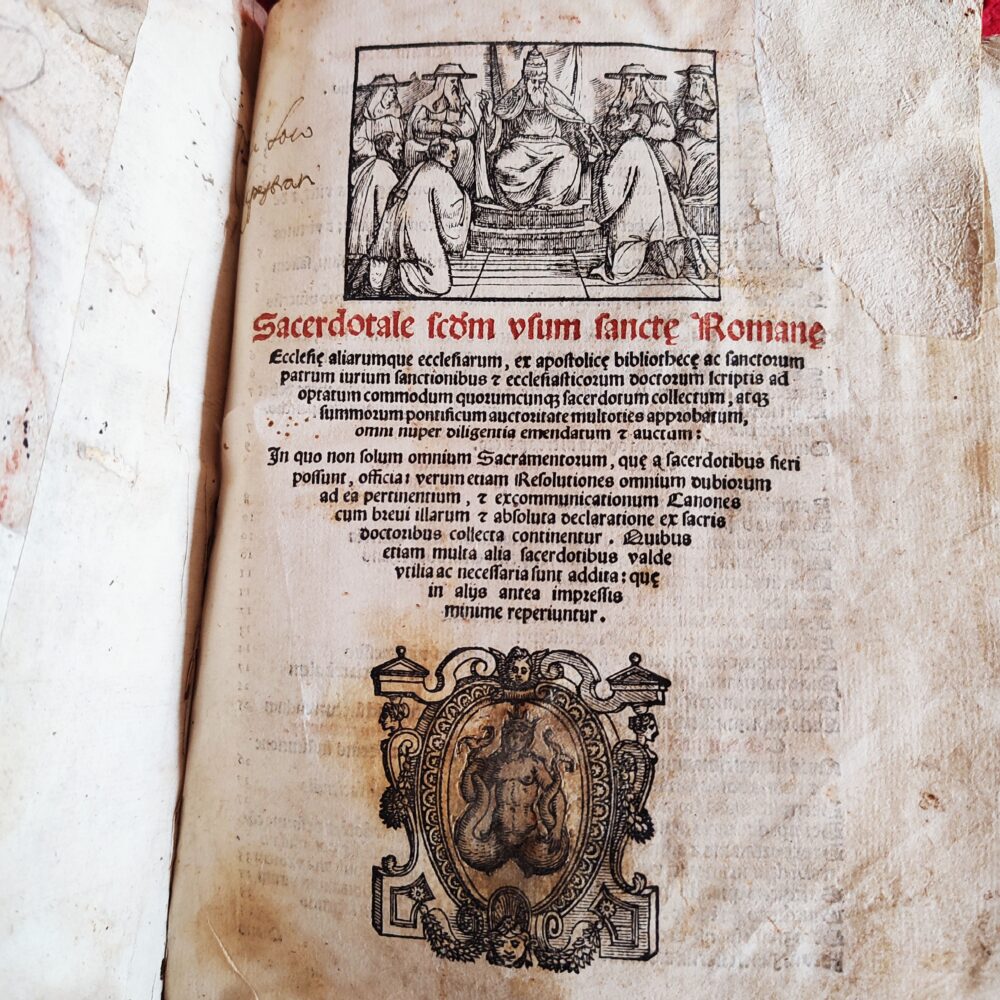 Sacerdotale scd̄m vsum sanctę Romanę
Ecclesię aliarumque ecclesiarum, ex apostolicę bibliothecę ac sanctorum
patrum iurium sanctionibus ⁊ ecclesiasticorum doctorum scriptis ad
optatum commodum quorumcunqꝫ sacerdotum collectum, atqꝫ
summorum pontificum auctoritate multoties approbatum,
omni nuper diligentia emendatum ⁊ auctum:
In quo non solum omnium Sacramentorum, quę ą sacerdotibus fieri
possunt, officia: verum etiam Resolutiones omnium dubiorum
ad ea pertinentium, ⁊ exçommunicationum Canones
cum breui illarum ⁊ absoluta declaratione ex sacris
doctoribus collecta continentur. Quibus
etiam multa alia sacerdotibus valde
vtilia ac necessaria sunt addita: quę
in alijs antea impressis
minime reperiuntur.